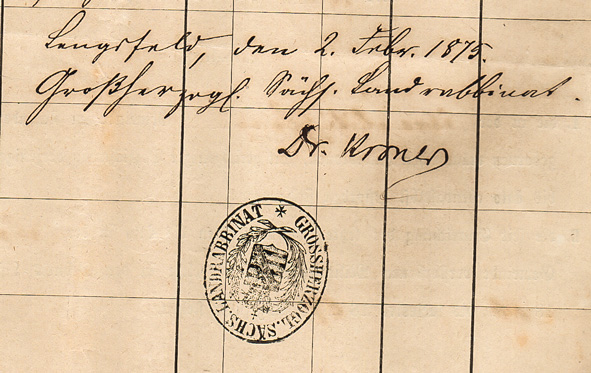 Lengsfeld, den 2. Febr. 1875.
Großherzogl. Sächs. Landrabbinat.
Dr. Kroner
GROSSHERZOGL. SÄCHS. LANDRABBINAT